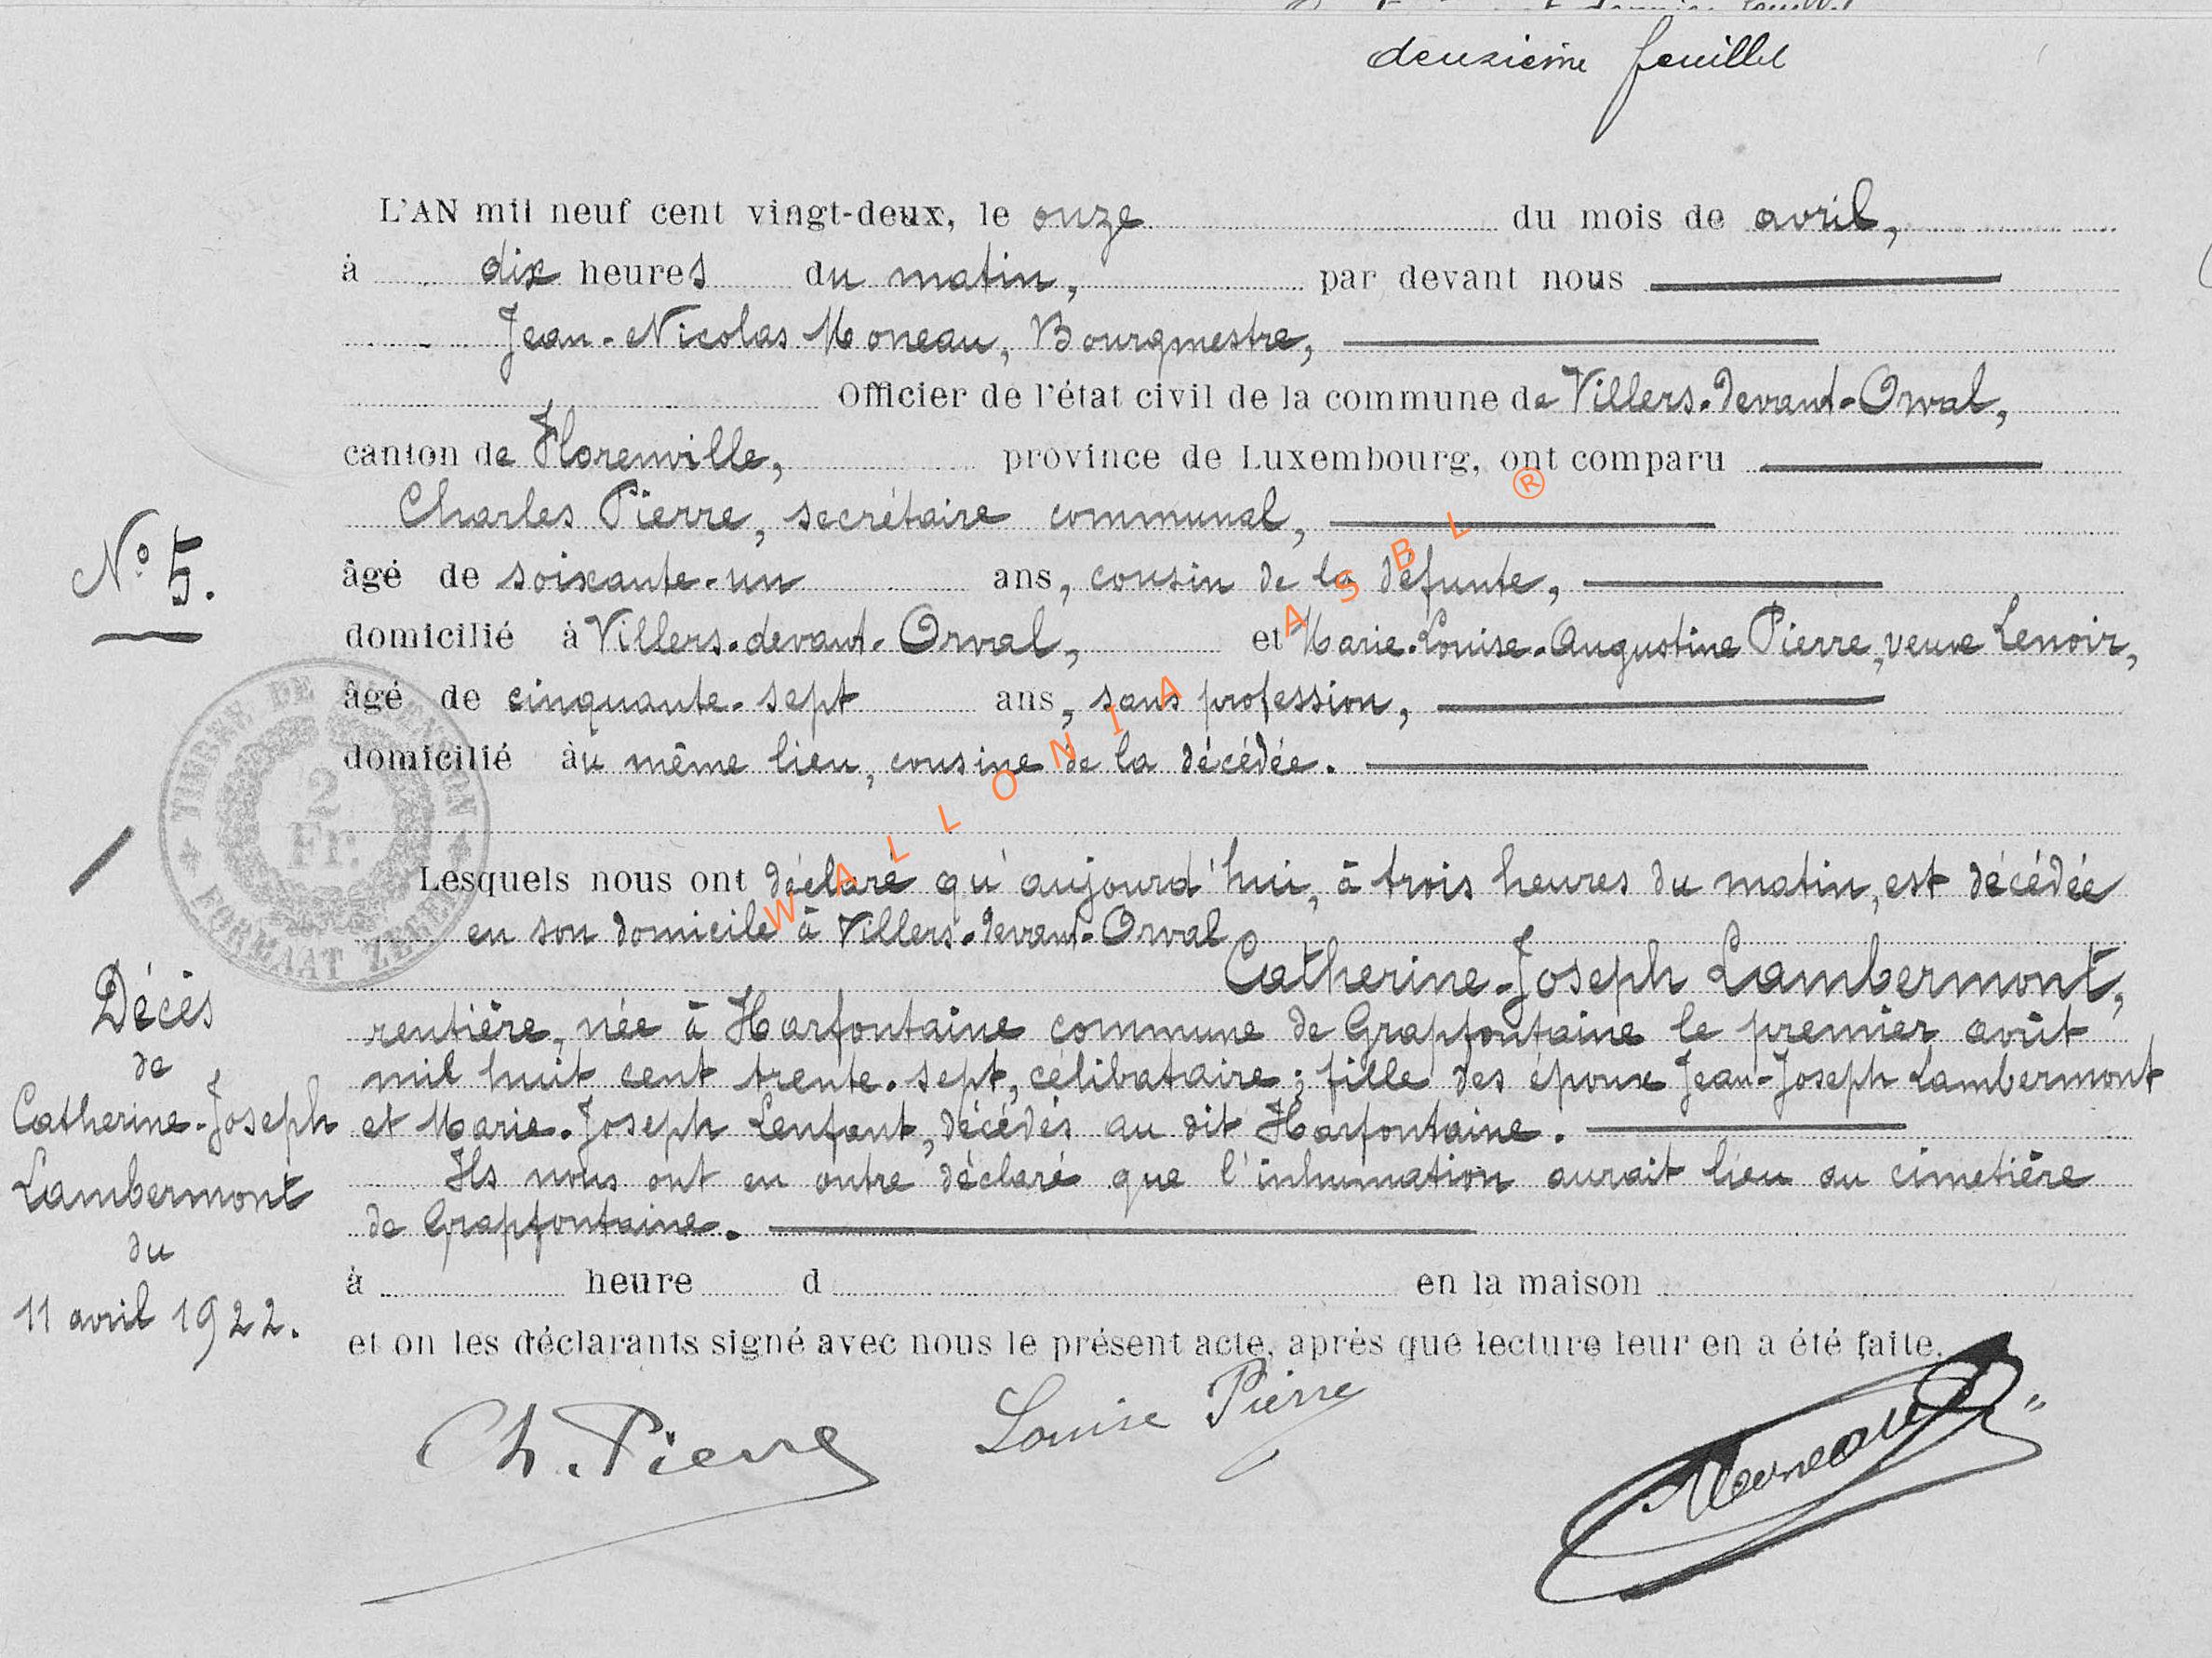 deuxième feuillet
L'AN mil neuf cent vingt-deux, le onze du mois de avril,
à dix heures du matin, par devant nous
Jean-Nicolas Moneau, Bourgmestre,
Officier de l'état civil de la commune de Villers-devant-Orval,
canton de Florenville, province de Luxembourg, ont comparu
Charles Pierre, secrétaire communal,
No 5.
âgé de soixante-un ans, cousin de la défunte,
domicilié à Villers-devant-Orval, et Marie-Louise-Augustine Pierre, veuve Lenoir,
âgé de cinquante-sept ans, sans profession,
domicilié àu même lieu, cousine de la décédée.
TIMBRE DE DIMENSION
2
Fr.
FORMAAT ZEGEL
Lesquels nous ont déclaré qu'aujourd'hui, à trois heures du matin, est décédée
en son domicile à Villers-devant-Orval
Catherine-Joseph Lambermont,
rentière, née à Harfontaine commune de Grapfontaine le premier août
mil huit cent trente-sept, célibataire; fille des époux Jean-Joseph Lambermont
et Marie-Joseph Lenfant, décédés au dit Harfontaine.
Ils nous ont en outre déclaré que l'inhumation aurait lieu au cimetière
de Grapfontaine.
à heure d en la maison
et on les déclarants signé avec nous le présent acte, après que lecture leur en a été faite.
Décès
de
Catherine-Joseph
Lambermont
du
11 avril 1922.
Ch. Pierre
Louise Pierre
Moneau
WALLONIA ASBL ®